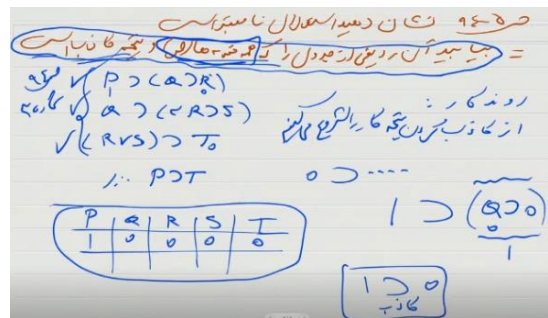 ص ۹۴۰ نشان دهید استدلال نامعتبر است
= بیابید آن ردیفی از جدول را که همه مقدمه‌ها صادق و نتیجه کاذب است
P ⊃ (Q ⊃ R)
Q ⊃ (~R ⊃ S)
(R ∨ S) ⊃ T
∴ P ⊃ T
روند کار:
از کاذب کردن نتیجه کار را شروع می‌کنیم
0 ⊃ ....
1 ⊃ (Q ⊃ 0)
0
1
P | Q | R | S | T
1 | 0 | 0 | 0 | 0
1 ⊃ 0
کاذب